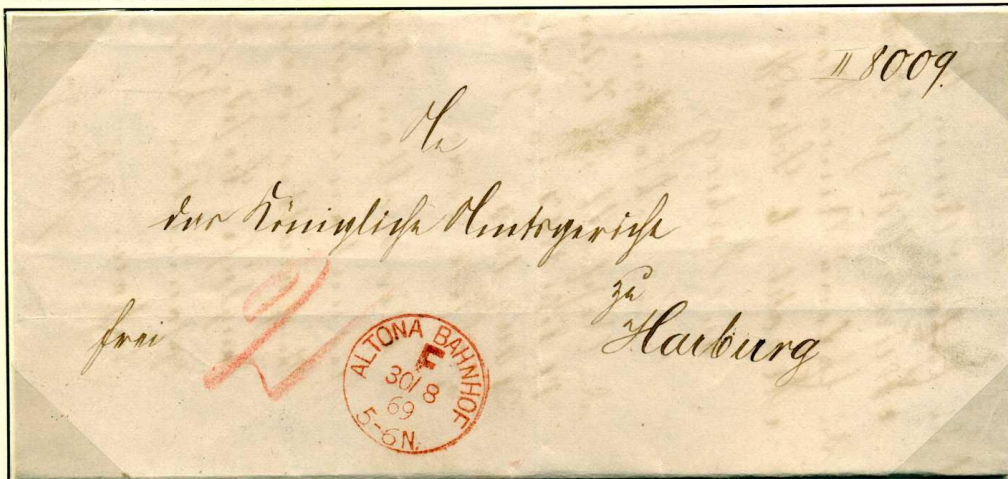 II 8009.
An
das Königliche Amtsgericht
zu
Harburg
frei
2
ALTONA BAHNHOF
F
30/8
69
5-6N.